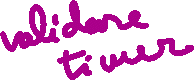 validare
timer